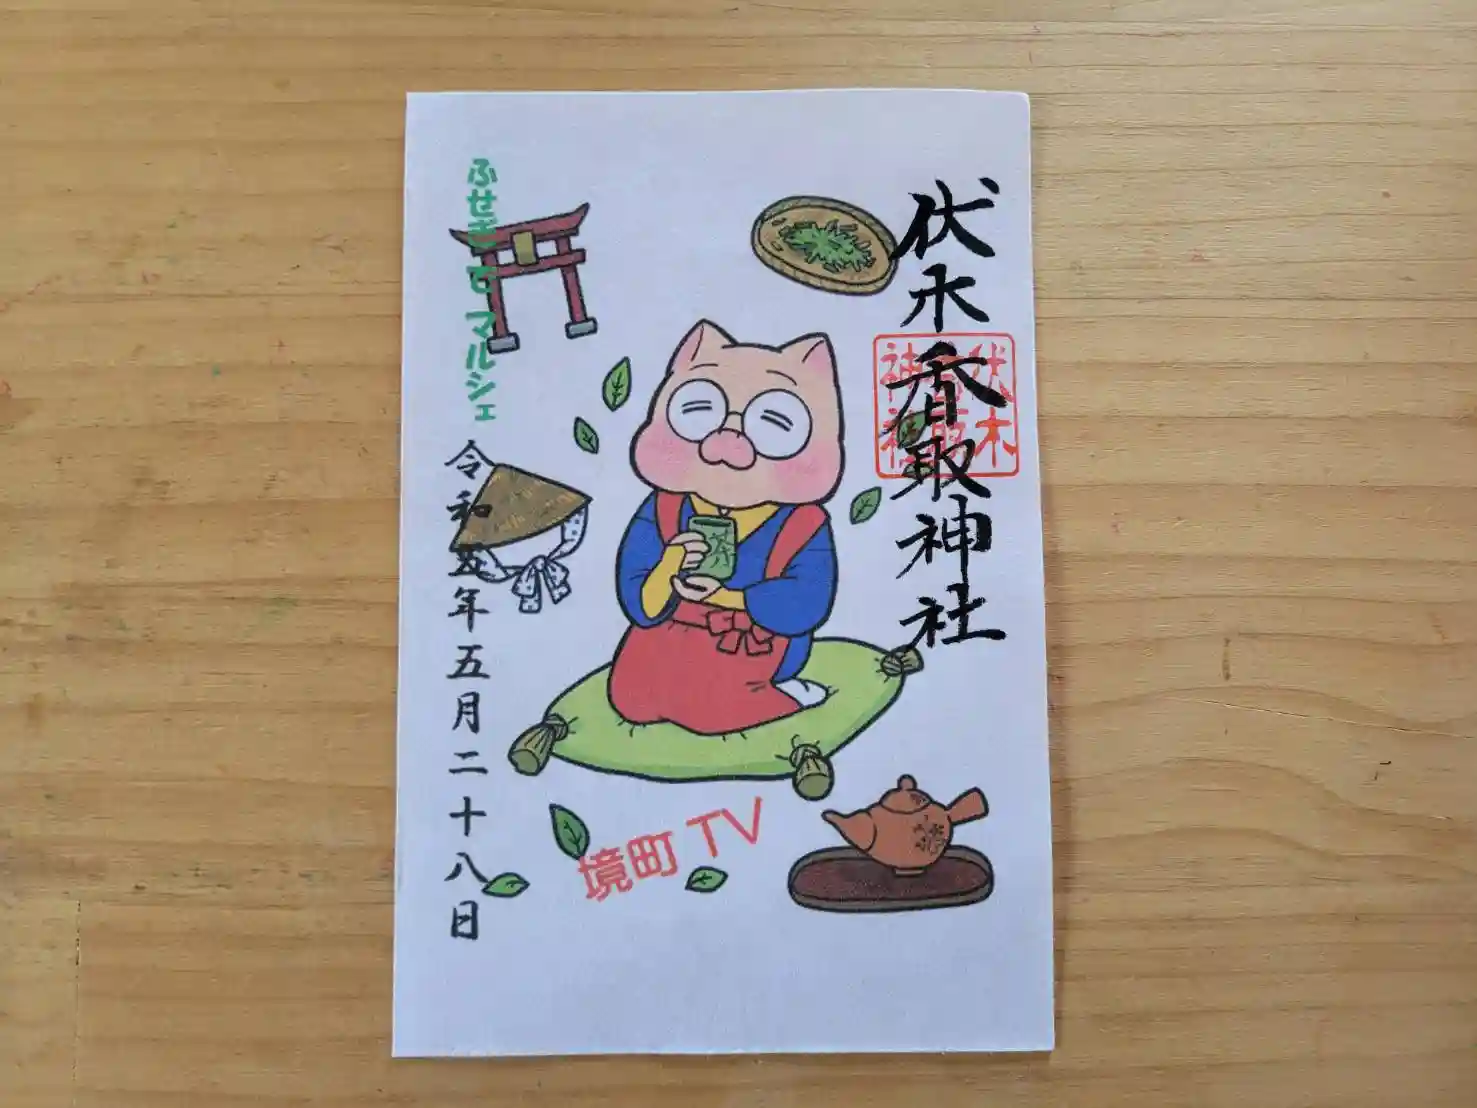 伏木香取神社
伏木
香取
神社
茶
ふせぎでマルシェ
令和五年五月二十八日
境町TV